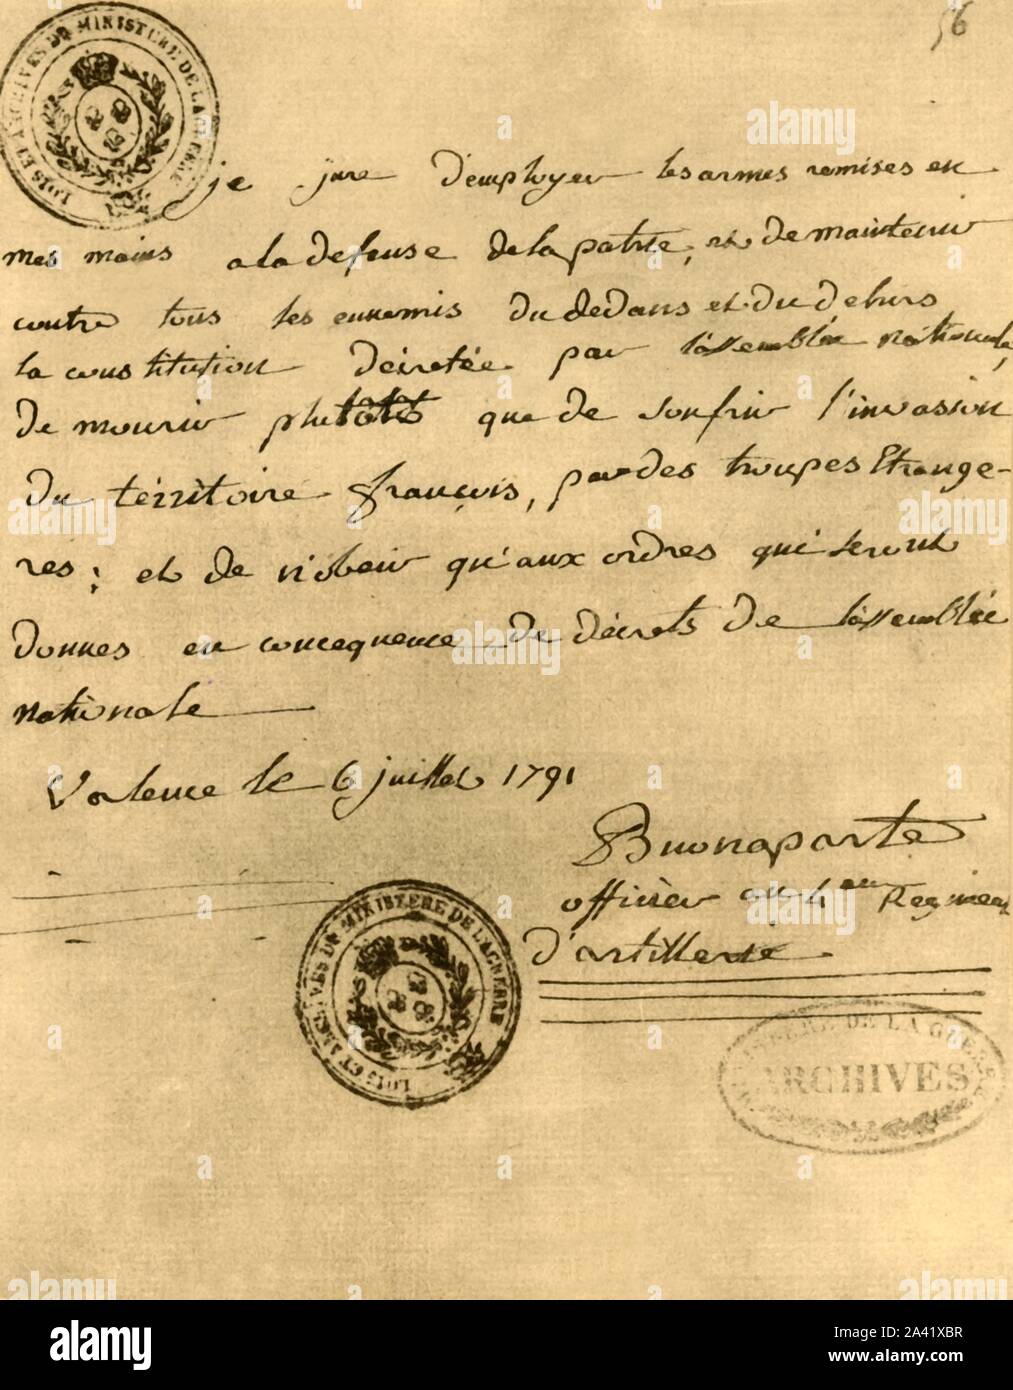 56
LOIS ET ARCHIVES DU MINISTERE DE LA GUERRE
je jure d'employer les armes remises en
mes mains a la defense de la patrie, et de maintenir
contre tous les ennemis du dedans et du dehors
la constitution décretée par l'assemblée nationale,
de mourir plutôt que de soufrir l'invasion
du térritoire françois, par des troupes Etrange-
res; et de n'obeir qu'aux ordres qui seront
donnes en concequence de décrets de l'assemblée
nationale
Valence le 6 juillet 1791
Buonaparte
officier au 4eme Regiment
d'artillerie
LOIS ET ARCHIVES DU MINISTERE DE LA GUERRE
MINISTERE DE LA GUERRE
ARCHIVES
alamy
Image ID: 2A41XBR
www.alamy.com